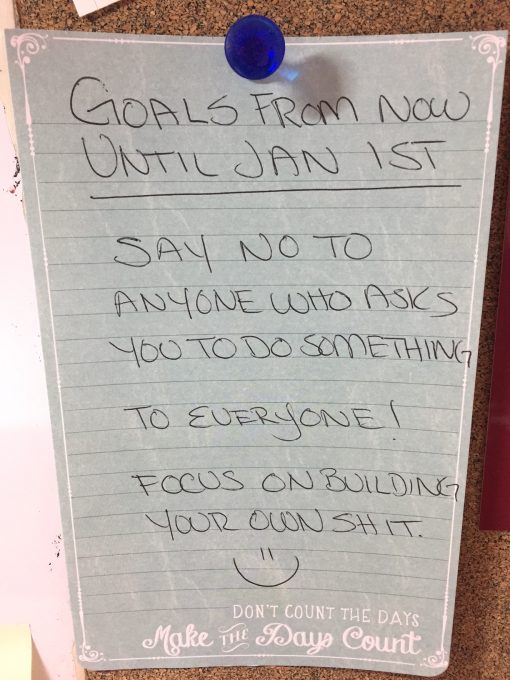 GOALS FROM NOW
UNTIL JAN 1ST
SAY NO TO
ANYONE WHO ASKS
YOU TO DO SOMETHING
TO EVERYONE!
FOCUS ON BUILDING
YOUR OWN SHIT.
DON'T COUNT THE DAYS
Make THE Days Count